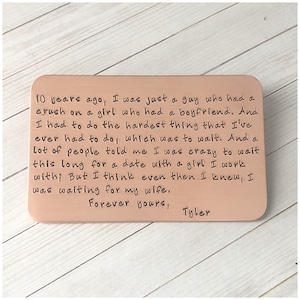 10 years ago, I was just a guy who had a
crush on a girl who had a boyfriend. And
I had to do the hardest thing that I've
ever had to do, which was to wait. And a
lot of people told me I was crazy to wait
this long for a date with a girl I work
with? But I think even then I knew, I
was waiting for my wife.
Forever yours,
Tyler